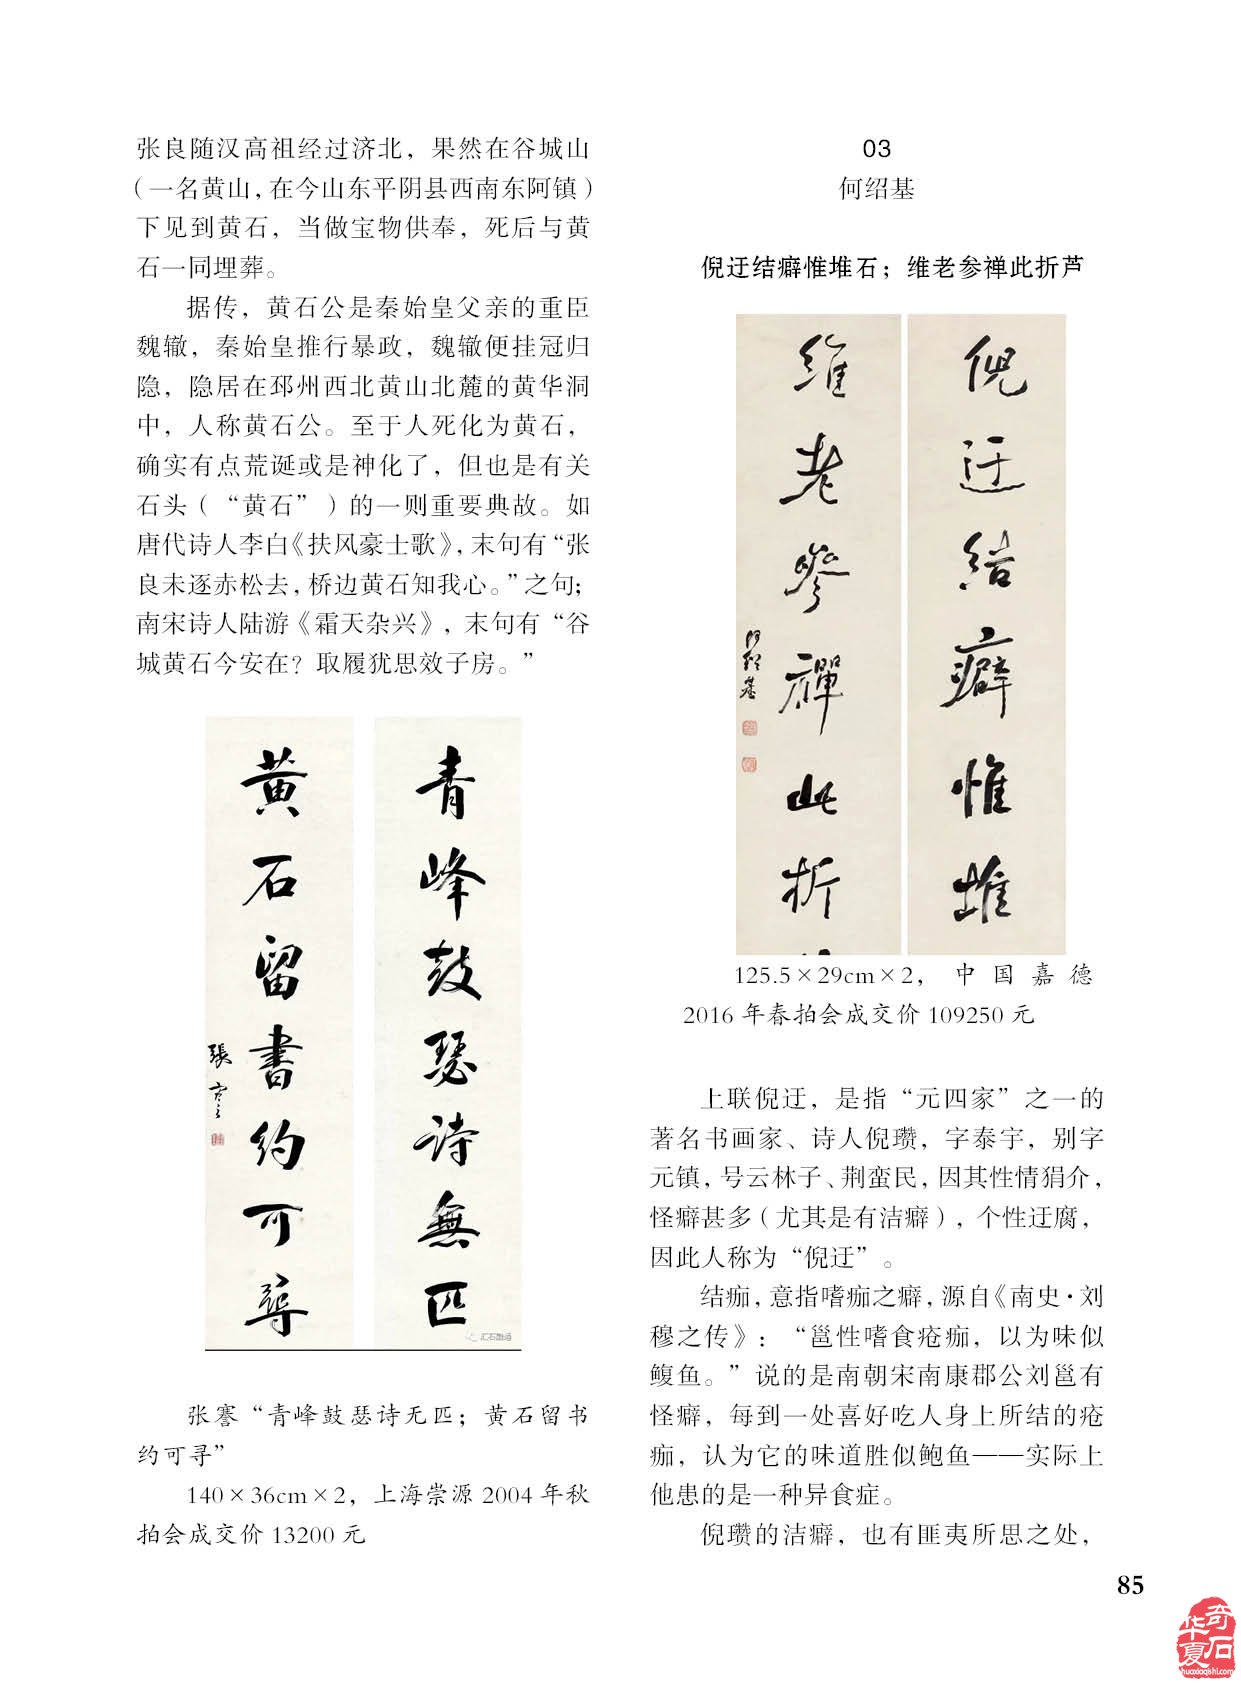 张良随汉高祖经过济北，果然在谷城山
（一名黄山，在今山东平阴县西南东阿镇）
下见到黄石，当做宝物供奉，死后与黄
石一同埋葬。
据传，黄石公是秦始皇父亲的重臣
魏辙，秦始皇推行暴政，魏辙便挂冠归
隐，隐居在邳州西北黄山北麓的黄华洞
中，人称黄石公。至于人死化为黄石，
确实有点荒诞或是神化了，但也是有关
石头（“黄石”）的一则重要典故。如
唐代诗人李白《扶风豪士歌》，末句有“张
良未逐赤松去，桥边黄石知我心。”之句；
南宋诗人陆游《霜天杂兴》，末句有“谷
城黄石今安在？取履犹思效子房。”
青峰鼓瑟詩無匹
黄石留書約可尋
張謇
汇石融通
张謇“青峰鼓瑟诗无匹；黄石留书
约可寻”
140×36cm×2，上海崇源 2004 年秋
拍会成交价 13200 元
03
何绍基
倪迂结癖惟堆石；维老参禅此折芦
倪迂結癖惟堆
維老參禪此折
何紹基
125.5×29cm×2，中国嘉德
2016 年春拍会成交价 109250 元
上联倪迂，是指“元四家”之一的
著名书画家、诗人倪瓒，字泰宇，别字
元镇，号云林子、荆蛮民，因其性情狷介，
怪癖甚多（尤其是有洁癖），个性迂腐，
因此人称为“倪迂”。
结痂，意指嗜痂之癖，源自《南史·刘
穆之传》：“邕性嗜食疮痂，以为味似
鳆鱼。”说的是南朝宋南康郡公刘邕有
怪癖，每到一处喜好吃人身上所结的疮
痂，认为它的味道胜似鲍鱼——实际上
他患的是一种异食症。
倪瓒的洁癖，也有匪夷所思之处，
85
华夏奇石
huaxiaqishi.com